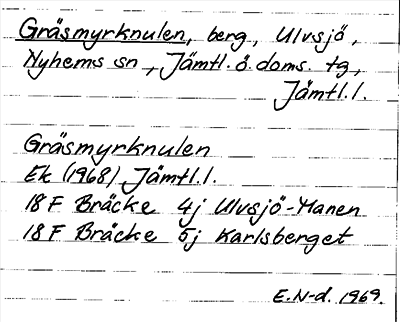 Gräsmyrknulen, berg, Ulvsjö,
Nyhems sn, Jämtl. ö. doms. tg,
Jämtl. l.
Gräsmyrknulen
Ek (1968) Jämtl. l.
18 F Bräcke 4j Ulvsjö-Manen
18 F Bräcke 5j Karlsberget
E. N-d. 1969.